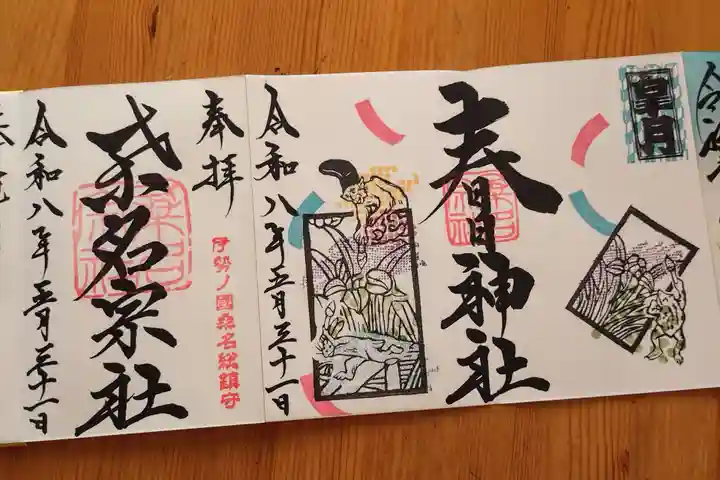 奉拝
伊勢ノ國桑名総鎮守
桑名宗社
令和八年五月三十一日
皐月
春日神社
令和八年五月三十一日